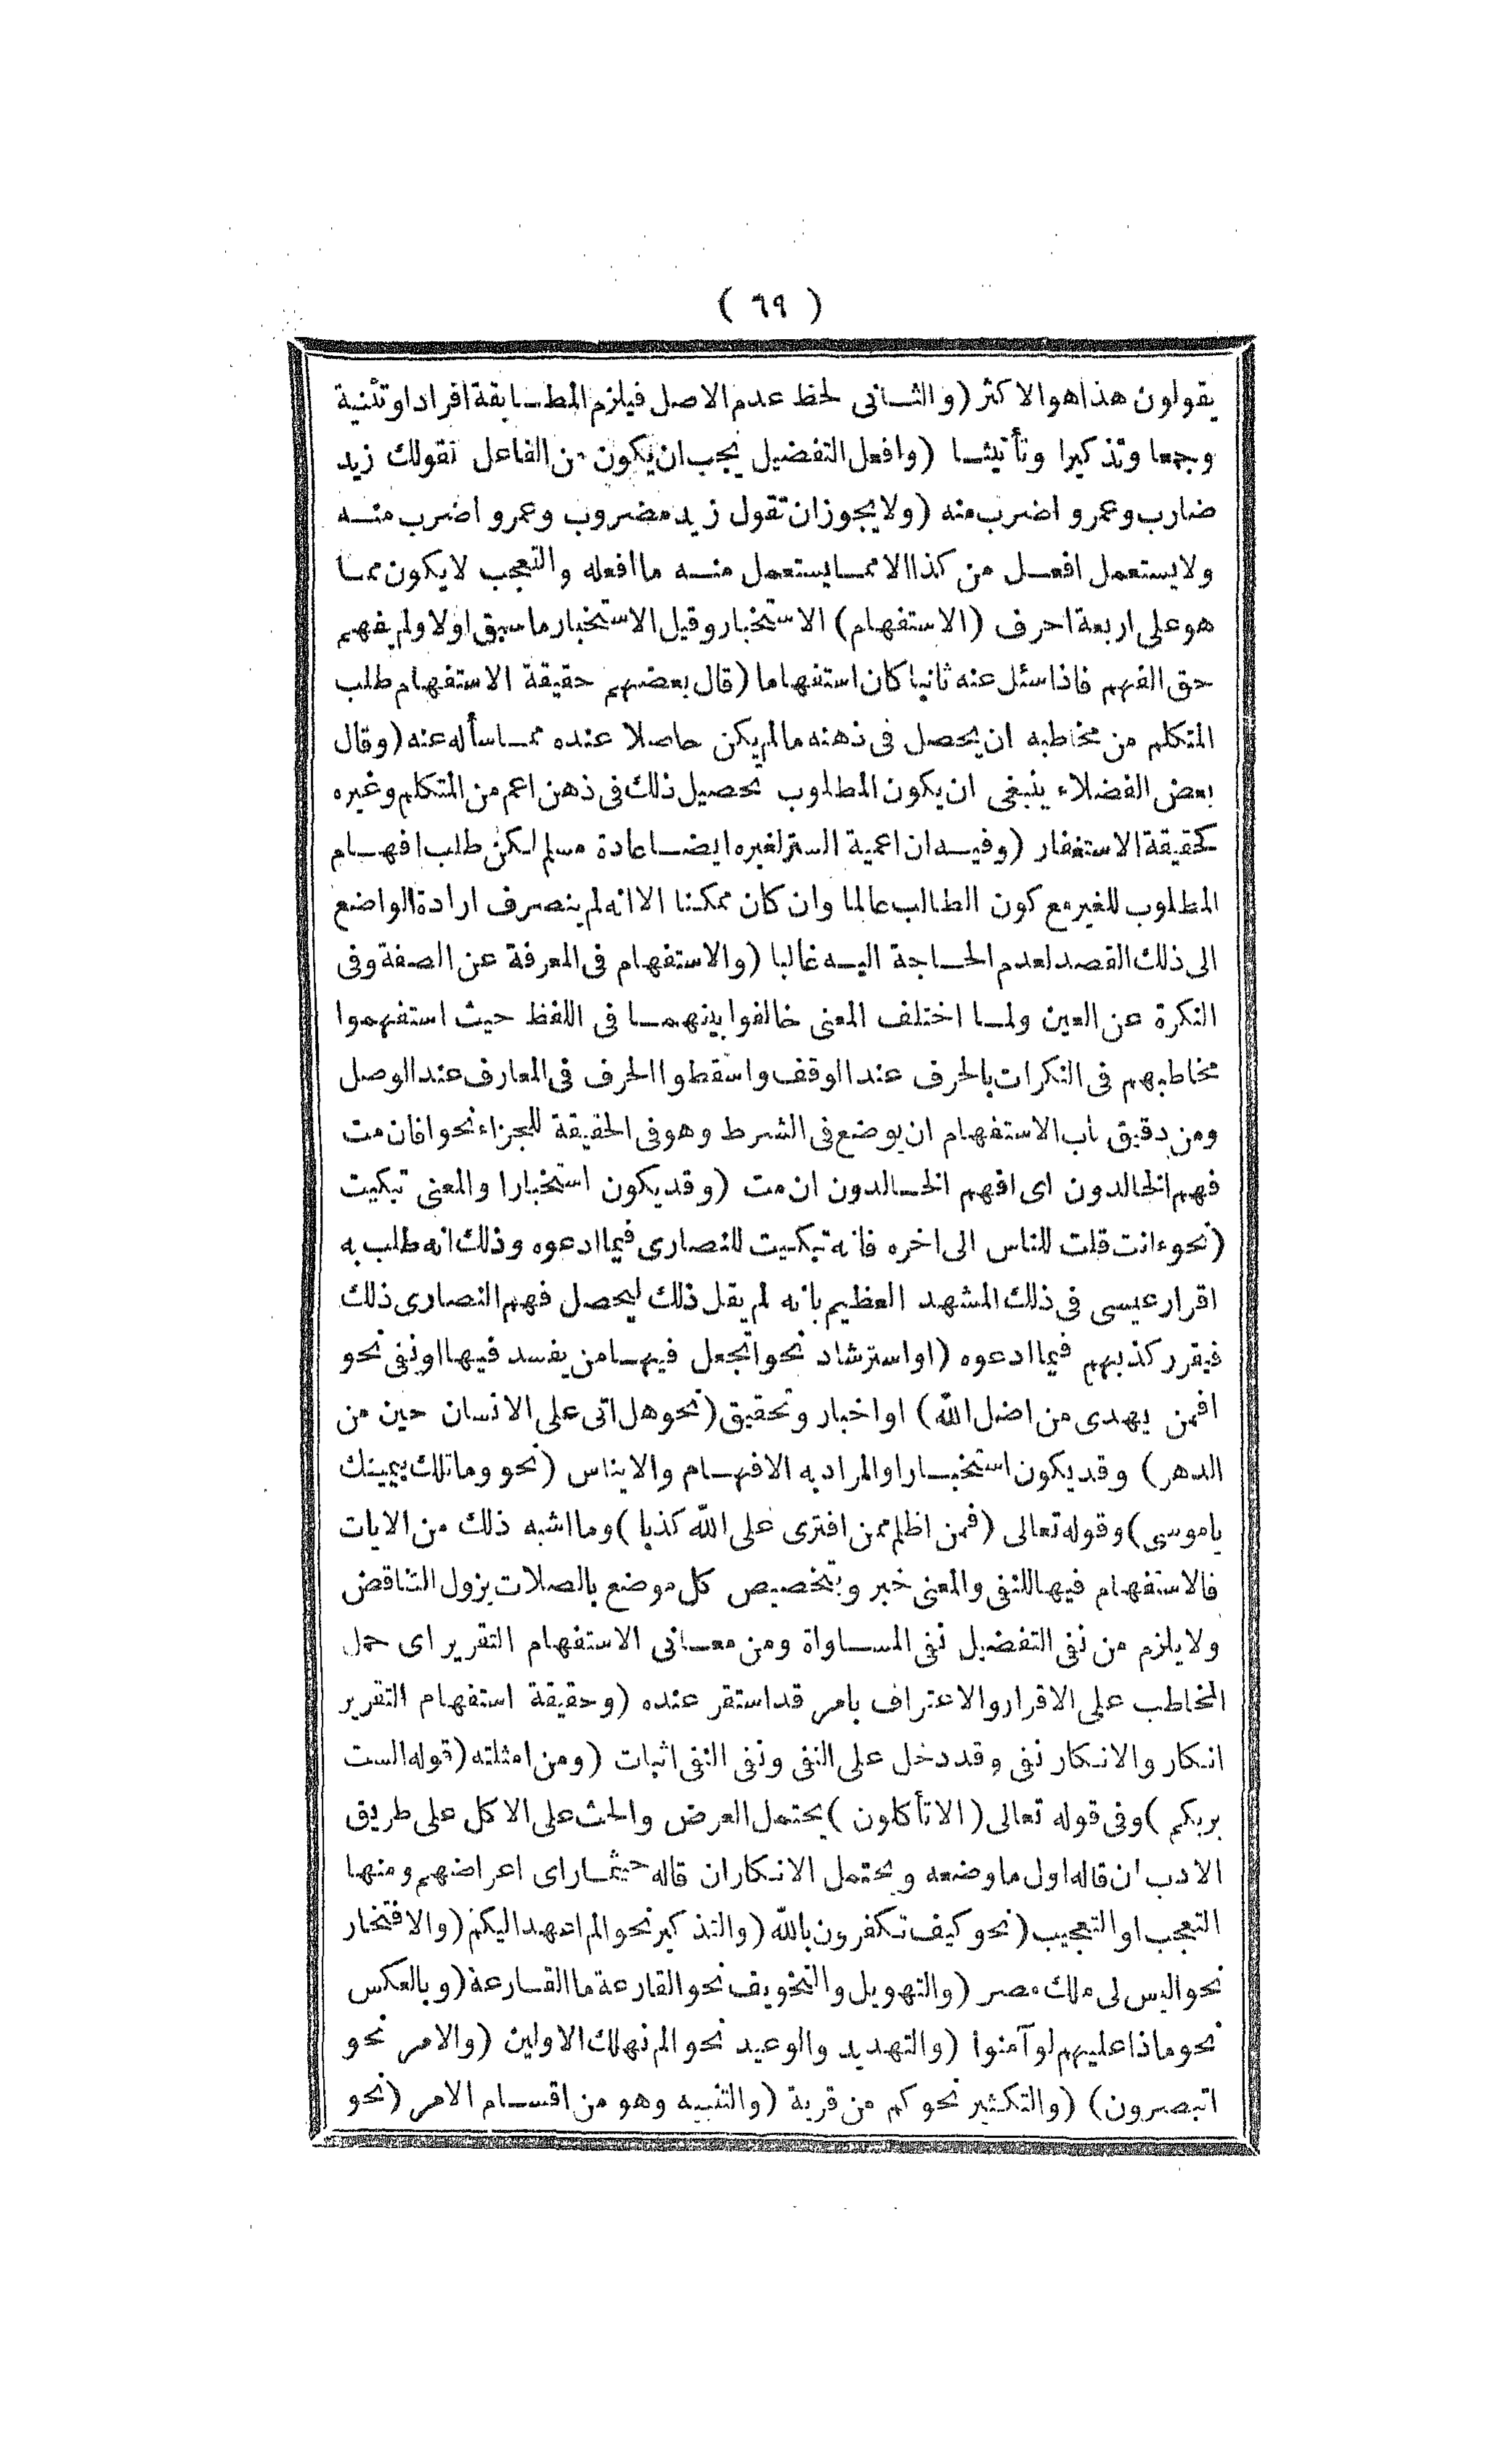 ( ٦٩ )
يقولون هذا هو الاكثر (والثانى لحظ عدم الاصل فيلزم المطابقة افرادا وتثنية
وجمعا وتذكيرا وتأنيثا (وافعل التفضيل يجب ان يكون من الفاعل تقولك زيد
ضارب وعمرو اضرب منه (ولا يجوز ان تقول زيد مضروب وعمرو اضرب منه
ولا يستعمل افعل من كذا الا مما يستعمل منه ما افعله والتعجب لا يكون مما
هو على اربعة احرف (الاستفهام) الاستخبار وقيل الاستخبار ما سبق اولا ولم يفهم
حق الفهم فاذا سئل عنه ثانيا كان استفهاما (قال بعضهم حقيقة الاستفهام طلب
المتكلم من مخاطبه ان يحصل فى ذهنه مالم يكن حاصلا عنده مما سأله عنه (وقال
بعض الفضلاء ينبغى ان يكون المطلوب تحصيل ذلك فى ذهن اعم من المتكلم وغيره
كحقيقة الاستغفار (وفيه ان اعمية الستر لغيره ايضا عادة مسلم لكن طلب افهام
المطلوب للغير مع كون الطالب عالما وان كان ممكنا الا انه لم ينصرف ارادة الواضع
الى ذلك القصد لعدم الحاجة اليه غالبا (والاستفهام فى المعرفة عن الصفة وفى
النكرة عن العين ولما اختلف المعنى خالفوا بينهما فى اللفظ حيث استفهموا
مخاطبهم فى النكرات بالحرف عند الوقف واسقطوا الحرف فى المعارف عند الوصل
ومن دقيق باب الاستفهام ان يوضع فى الشرط وهو فى الحقيقة للجزاء نحو افان مت
فهم الخالدون اى افهم الخالدون ان مت (وقد يكون استخبارا والمعنى تبكيت
(نحو ءانت قلت للناس الى اخره فانه تبكيت للنصارى فيما ادعوه وذلك انه طلب به
اقرار عيسى فى ذلك المشهد العظيم بانه لم يقل ذلك ليحصل فهم النصارى ذلك
فيقرر كذبهم فيما ادعوه (او استرشاد نحو اتجعل فيها من يفسد فيها او نفى نحو
افمن يهدى من اضل الله) او اخبار وتحقيق (نحو هل اتى على الانسان حين من
الدهر) وقد يكون استخبارا والمراد به الافهام والايناس (نحو وما تلك بيمينك
ياموسى) وقوله تعالى (فمن اظلم ممن افترى على الله كذبا) وما اشبه ذلك من الايات
فالاستفهام فيها للنفى والمعنى خبر وبتخصيص كل موضع بالصلات يزول التناقض
ولا يلزم من نفى التفضيل نفى المساواة ومن معانى الاستفهام التقرير اى حمل
المخاطب على الاقرار والاعتراف بامر قد استقر عنده (وحقيقة استفهام التقرير
انكار والانكار نفى وقد دخل على النفى ونفى النفى اثبات (ومن امثلته (قوله الست
بربكم) وفى قوله تعالى (الا تأكلون) يحتمل العرض والحث على الاكل على طريق
الادب ان قاله اول ما وضعه ويحتمل الانكار ان قاله حيثما راى اعراضهم ومنها
التعجب او التعجيب (نحو كيف تكفرون بالله (والتذكير نحو الم اعهد اليكم (والافتخار
نحو اليس لى ملك مصر (والتهويل والتخويف نحو القارعة ما القارعة (وبالعكس
نحو ماذا عليهم لو آمنوا (والتهديد والوعيد نحو الم نهلك الاولين (والامر نحو
اتبصرون) (والتكثير نحو كم من قرية (والتنبيه وهو من اقسام الامر (نحو